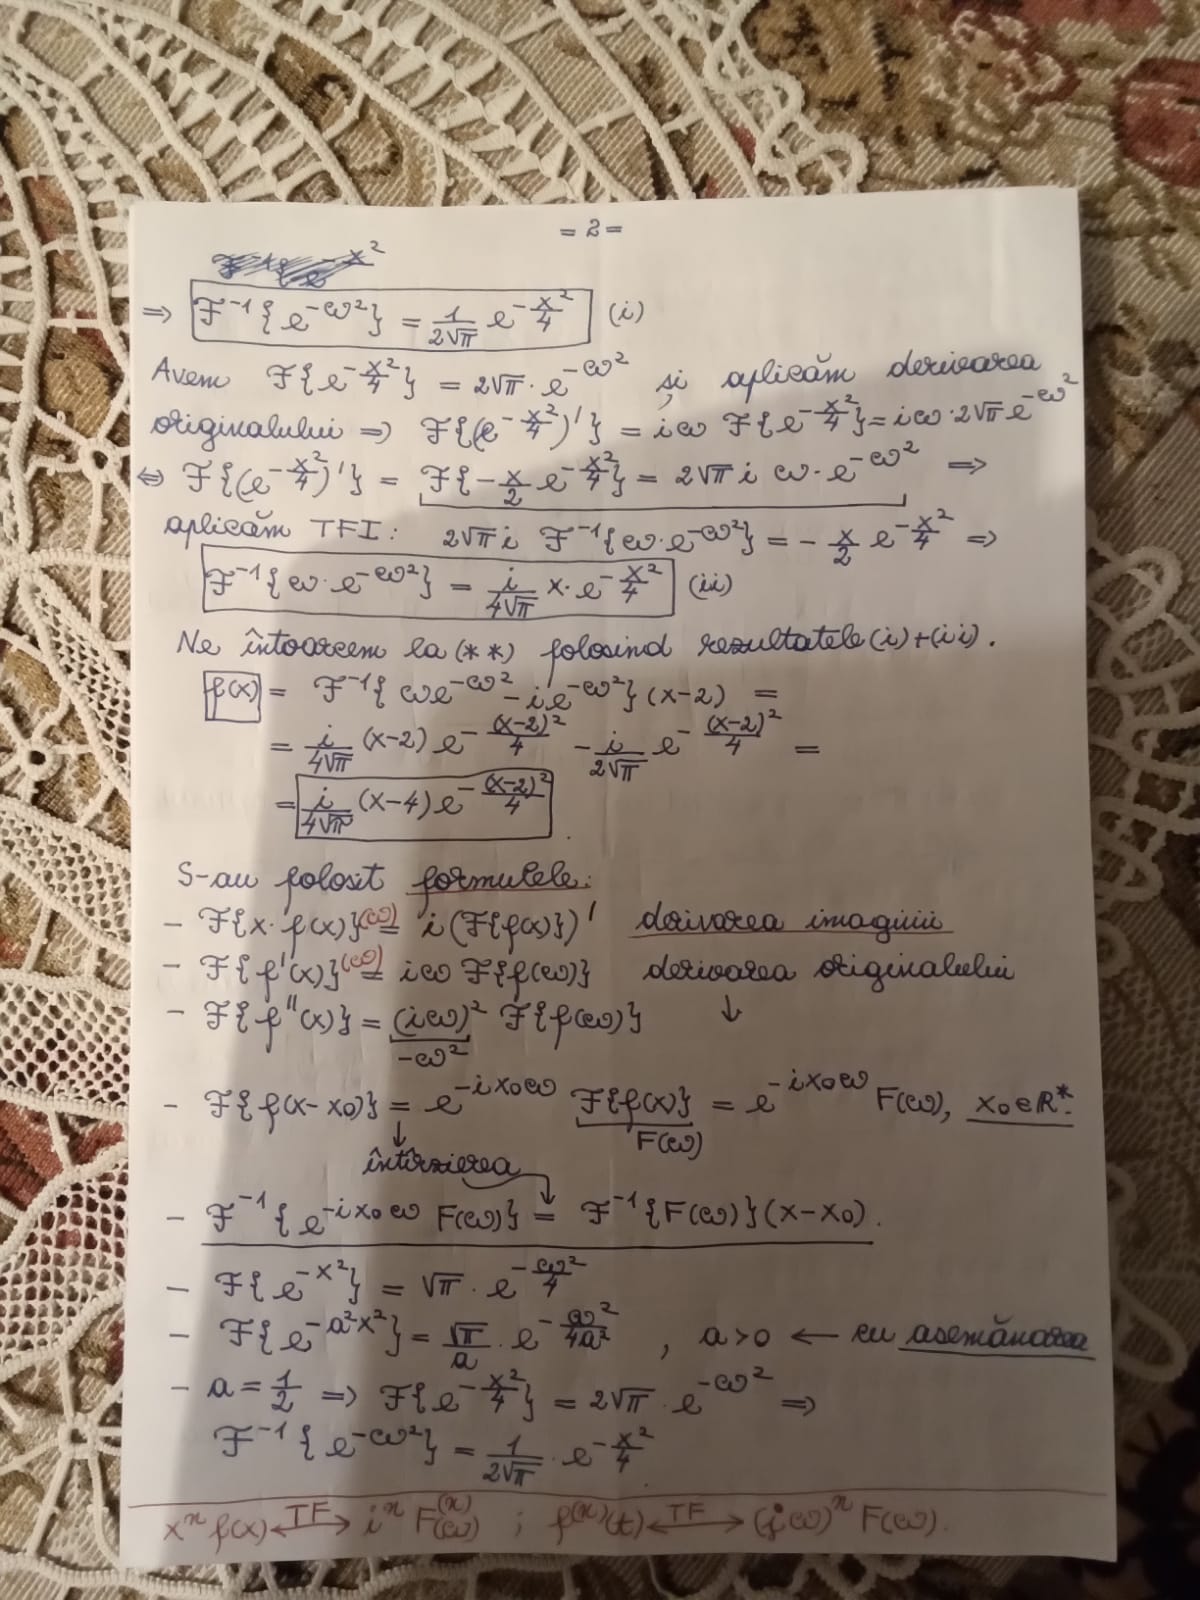 = 2 =
⇒ F⁻¹{e^(-ω²)} = 1/(2√π) e^(-x²/4) (i)
Avem F{e^(-x²/4)} = 2√π · e^(-ω²) și aplicăm derivarea
originalului ⇒ F{(e^(-x²/4))'} = iω F{e^(-x²/4)} = iω · 2√π e^(-ω²)
⇔ F{(e^(-x²/4))'} = F{-x/2 e^(-x²/4)} = 2√π i ω · e^(-ω²) ⇒
aplicăm TFI: 2√π i F⁻¹{ω · e^(-ω²)} = - x/2 e^(-x²/4) ⇒
F⁻¹{ω · e^(-ω²)} = i/(4√π) x · e^(-x²/4) (ii)
Ne întoarcem la (**) folosind rezultatele (i)+(ii).
f(x) = F⁻¹{ωe^(-ω²) - i e^(-ω²)}(x-2) =
= i/(4√π) (x-2) e^(-(x-2)²/4) - i/(2√π) e^(-(x-2)²/4) =
= i/(4√π) (x-4) e^(-(x-2)²/4) .
S-au folosit formulele:
- F{x · f(x)}(ω) = i (F{f(x)})' derivarea imaginii
- F{f'(x)}(ω) = iω F{f(ω)} derivarea originalului
- F{f''(x)} = (iω)² F{f(ω)} ↓
-ω²
- F{f(x-x₀)} = e^(-ix₀ω) F{f(x)} = e^(-ix₀ω) F(ω), x₀∈ℝ*.
↓ F(ω)
întîrzierea
- F⁻¹{e^(-ix₀ω) F(ω)} = F⁻¹{F(ω)}(x-x₀).
- F{e^(-x²)} = √π · e^(-ω²/4)
- F{e^(-a²x²)} = √π/a · e^(-ω²/4a²) , a>0 ← cu asemănarea
- a = 1/2 ⇒ F{e^(-x²/4)} = 2√π · e^(-ω²) ⇒
F⁻¹{e^(-ω²)} = 1/(2√π) · e^(-x²/4)
xⁿ f(x) ←TF→ iⁿ F⁽ⁿ⁾(ω) ; f⁽ⁿ⁾(t) ←TF→ (jω)ⁿ F(ω).